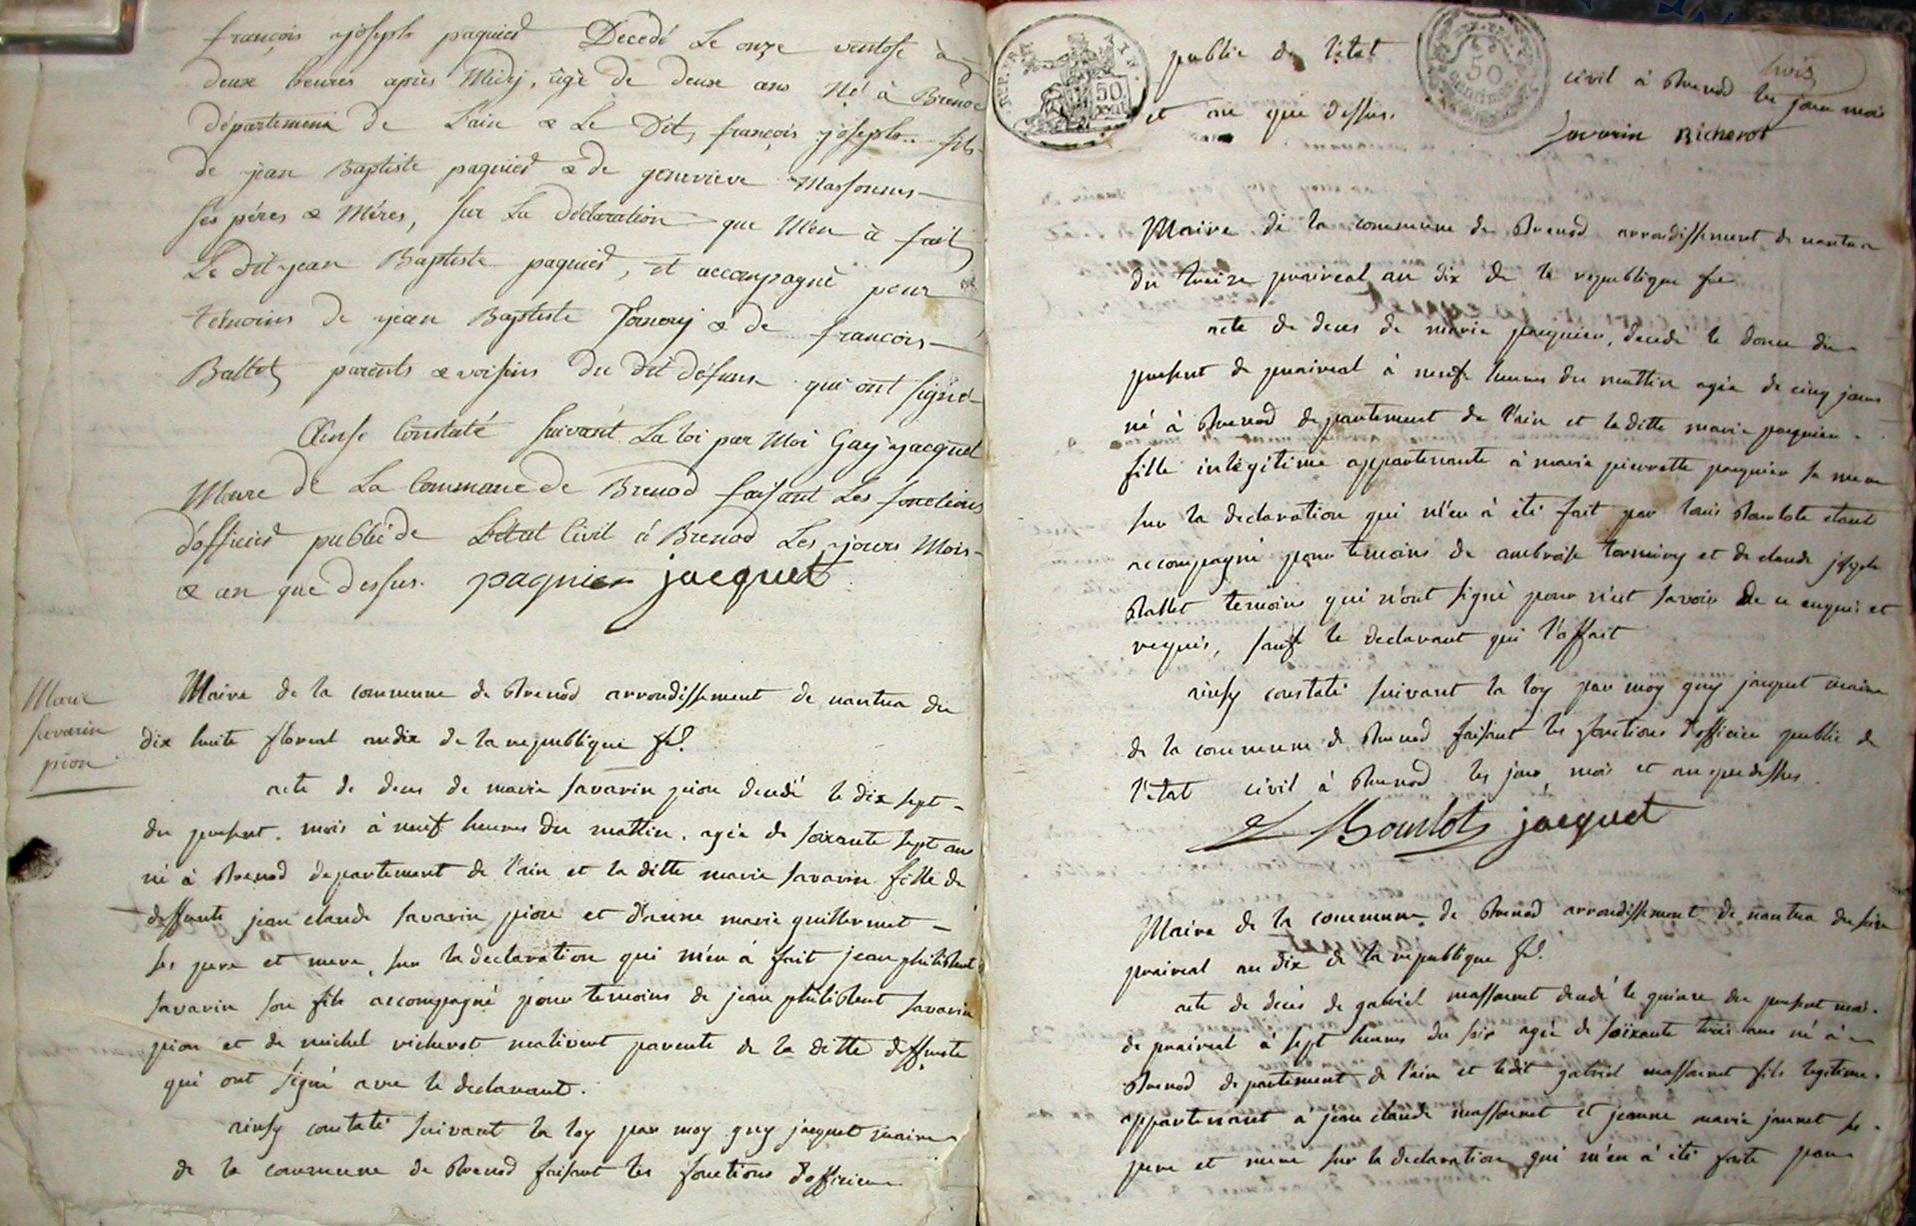 françois joseph paquier Decedé Le onze ventose à
deux heures après Midy, âgé de deux ans Né à Brenod
département de Lain & Le Dit françois joseph fils
de jean Baptiste paquier & de genevieve Massonnet
ses péres & Méres, sur La déclaration que M'en à fait
Le dit jean Baptiste paquier, et accompagné pour
témoins de jean Baptiste Tornery & de françois
Ballet parents & voisins du dit défunt qui ont signé
Ainsi Constaté suivant La loi par Moi Guy jacquet
Maire de La Commune de Brenod faisant Les fonctions
d'officier public de L'état Civil à Brenod Les jours Mois
& an que dessus. paquier jacquet
Marie
savarin
pion
Maire de la commune de Brenod arrondissement de nantua du
dix huite floreal an dix de la republique fse
acte de deces de marie savarin pion decedé le dix sept
du present mois à neuf heures du mattin, agée de soixante sept ans
né à Brenod departement de l'ain et la ditte marie savarin fille de
deffunts jean claude savarin pion et d'anne marie guillermet
ses pere et mere, sur la declaration qui m'en à fait jean philibert
savarin son fils accompagné pour temoins de jean philibert savarin
pion et de michel richerot parents de la ditte deffunte
qui ont signé avec le declarant.
ainsy constaté suivant la loy par moy guy jacquet maire
de la commune de Brenod faisant les fonctions d'officier
REP. FRA.
50
public de l'état
50
centimes
civil à Brenod les jour mois
trois
et an que dessus.
savarin Richerot
Maire de la commune de Brenod arrondissement de nantua
du treize praireal an dix de la republique fse
acte de deces de marie paquier, decedé le douze du
present de praireal à neuf heures du mattin agée de cinq jours
né à Brenod departement de l'ain et la ditte marie paquier
fille inlégitime appartenante à marie pierrette paquier sa mere
sur la declaration qui m'en à été fait par louis Bourlot etant
accompagné pour temoins de ambroise tornery et de claude joseph
Ballet temoins qui n'ont signé pour n'eut savoir de ce enquis et
requis, sauf le declarant qui l'affait
ainsy constaté suivant la loy par moy guy jacquet maire
de la commune de Brenod faisant les fonctions d'officier public de
l'etat civil à Brenod les jour mois et an que dessus.
L Bourlot jacquet
Maire de la commune de Brenod arrondissement de nantua du seize
praireal an dix de la republique fse
acte de decés de gabriel massonnet decedé le quinze du present mois
de praireal à sept heures du soir agée de soixante trois ans né à
Brenod departement de l'ain et ledit gabriel massonnet fils legitime
appartenant à jean claude massonnet et jeanne marie jannet ses
pere et mere sur la declaration qui m'en à été faite par